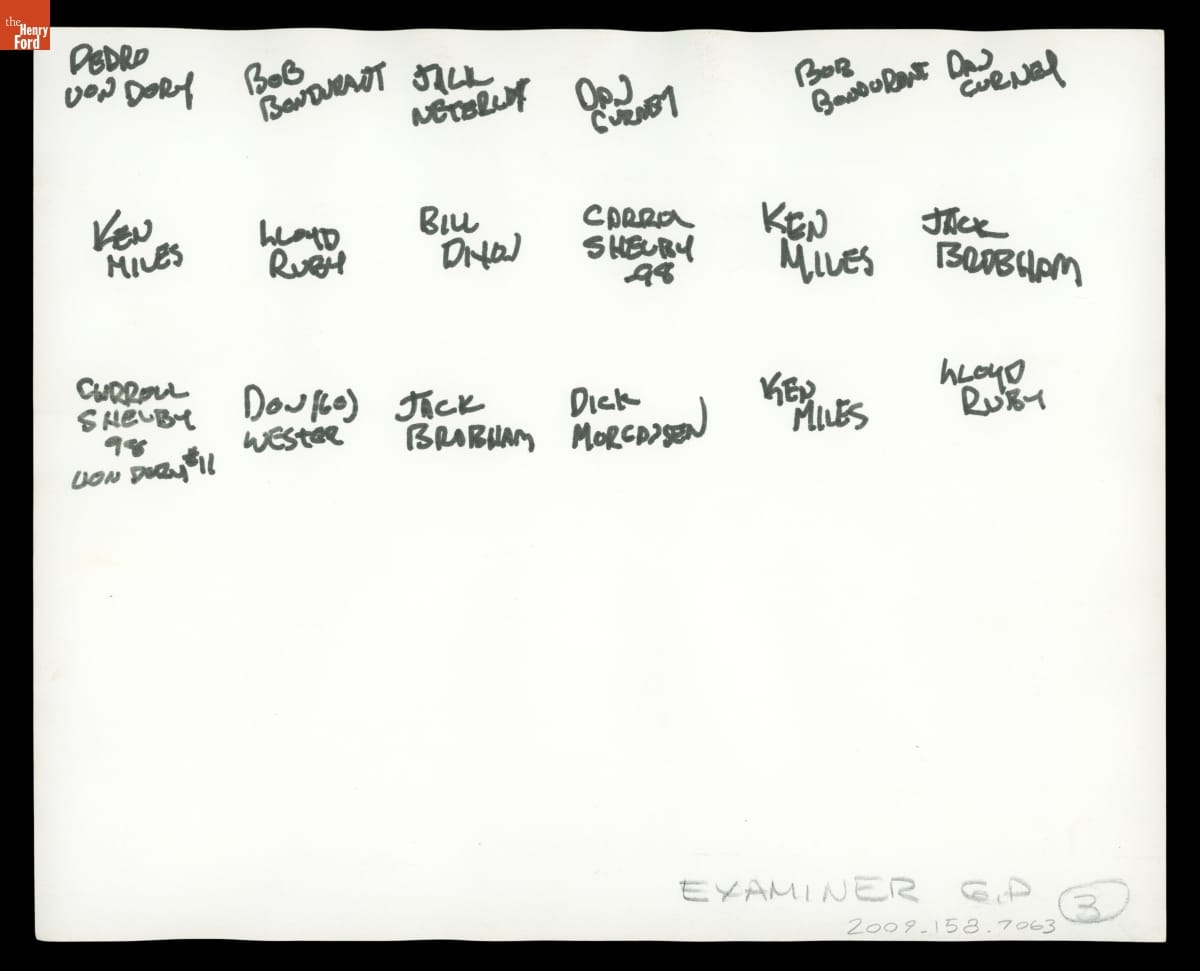 the
Henry
Ford
PEDRO
VON DORY
BOB
BONDURANT
JACK
NETERCUT
DAN
GURNEY
BOB
BONDURANT
DAN
GURNEY
KEN
MILES
LLOYD
RUBY
BILL
DIXON
CARROL
SHELBY
98
KEN
MILES
JACK
BRABHAM
CARROLL
SHELBY
98
VON DORY #11
DON (60)
WESTER
JACK
BRABHAM
DICK
KEN
MILES
LLOYD
RUBY
EXAMINER G.P
3
2009.158.7063